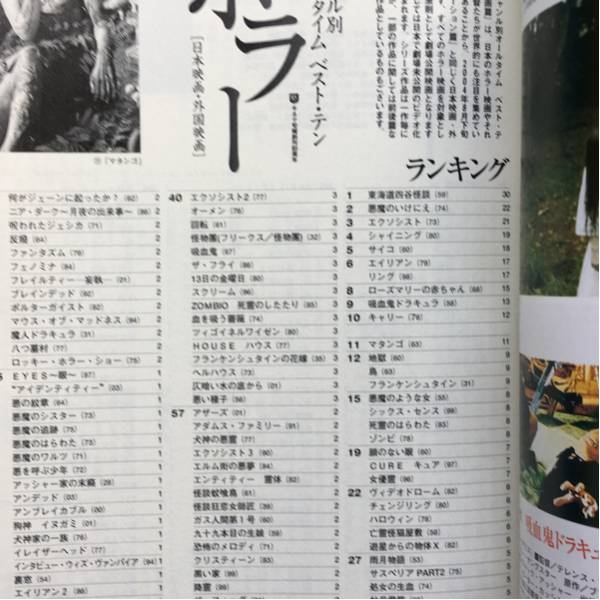 ャンル別オールタイム ベスト・テ
ル別
タイム ベスト・テン
ホラー
[日本映画・外国映画]
『マタンゴ』
ランキング
1 東海道四谷怪談 (59) 30
2 悪魔のいけにえ (74) 22
3 エクソシスト (73) 21
4 シャイニング (80) 19
5 サイコ (60) 18
6 エイリアン (79) 16
リング (98) 16
8 ローズマリーの赤ちゃん (68) 15
9 吸血鬼ドラキュラ (58) 13
10 キャリー (76) 12
11 マタンゴ (63) 11
12 地獄 (60) 9
鳥 (63) 9
フランケンシュタイン (31) 9
15 悪魔のような女 (55) 8
シックス・センス (99) 8
死霊のはらわた (83) 8
ゾンビ (79) 8
19 顔のない眼 (60) 7
CURE キュア (97) 7
女優霊 (96) 7
22 ヴィデオドローム (82)
チェンジリング (80)
ハロウィン (79)
亡霊怪猫屋敷 (58)
遊星からの物体X (82)
27 雨月物語 (53)
サスペリアPART2 (75)
処女の生血 (74)
40 エクソシスト2 (77) 3
オーメン (76) 3
回転 (61) 3
怪物團(フリークス/怪物團) (32) 3
吸血鬼 (67) 3
ザ・フライ (86) 3
13日の金曜日 (80) 3
スクリーム (96) 3
ZOMBIO 死霊のしたたり (85) 3
血を吸う薔薇 (74) 3
ツィゴイネルワイゼン (80) 3
HOUSE ハウス (77) 3
フランケンシュタインの花嫁 (35) 3
ヘルハウス (73) 3
仄暗い水の底から (01) 3
悪い種子 (56) 3
57 アザーズ (01) 2
アダムス・ファミリー (91) 2
犬神の悪霊 (77) 2
エクソシスト3 (90) 2
エルム街の悪夢 (84) 2
エンティティー 霊体 (82) 2
怪談蚊喰鳥 (61) 2
怪談狂恋女師匠 (26) 2
ガス人間第1号 (60) 2
九十九本目の生娘 (59) 2
恐怖のメロディ (71) 2
クリスティーン (83) 2
黒い家 (99) 2
降霊 (99) 2
何がジェーンに起ったか? (62) 2
ニア・ダーク〜月夜の出来事〜 (86) 2
呪われたジェシカ (71) 2
反撥 (64) 2
ファンタズム (79) 2
フェノミナ (84) 2
フレイルティー―妄執― (01) 2
ブレインデッド (92) 2
ポルターガイスト (82) 2
マウス・オブ・マッドネス (94) 2
魔人ドラキュラ (31) 2
八つ墓村 (77) 2
ロッキー・ホラー・ショー (75) 2
EYES〜眼〜 (87) 1
“アイデンティティー” (03) 1
悪の紋章 (64) 1
悪魔のシスター (73) 1
悪魔の追跡 (75) 1
悪魔のはらわた (73) 1
悪魔のワルツ (71) 1
悪を呼ぶ少年 (72) 1
アッシャー家の末裔 (28) 1
アンデッド (03) 1
アンブレイカブル (00) 1
狗神 イヌガミ (01) 1
犬神家の一族 (76) 1
イレイザーヘッド (77) 1
インタビュー・ウィズ・ヴァンパイア (94) 1
裏窓 (54) 1
エイリアン2 (86) 1
吸血鬼ドラキュ